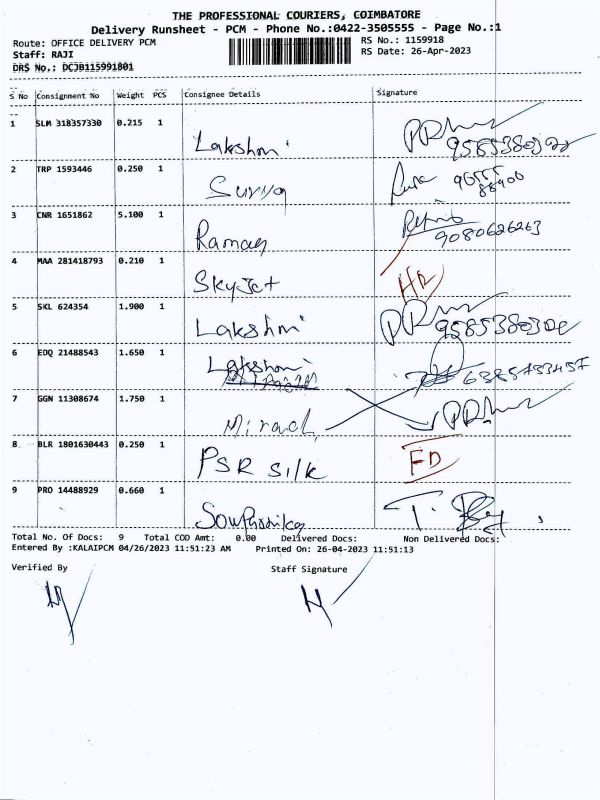 THE PROFESSIONAL COURIERS, COIMBATORE
Delivery Runsheet - PCM - Phone No.:0422-3505555 - Page No.:1
Route: OFFICE DELIVERY PCM RS No.: 1159918
Staff: RAJI RS Date: 26-Apr-2023
DRS No.: DCJB115991801
S No Consignment No Weight PCS Consignee Details Signature
1 SLM 318357330 0.215 1 Lakshmi
2 TRP 1593446 0.250 1 Surya
3 CNR 1651862 5.100 1 9080626263
4 MAA 281418793 0.210 1 SkyJet
5 SKL 624354 1.900 1 Lakshmi
6 EDQ 21488543 1.650 1 Lakshmi
7 GGN 11308674 1.750 1
8 BLR 1801630443 0.250 1 PSR silk FD
9 PRO 14488929 0.660 1
Total No. Of Docs: 9 Total COD Amt: 0.00 Delivered Docs: Non Delivered Docs:
Entered By :KALAIPCM 04/26/2023 11:51:23 AM Printed On: 26-04-2023 11:51:13
Verified By Staff Signature